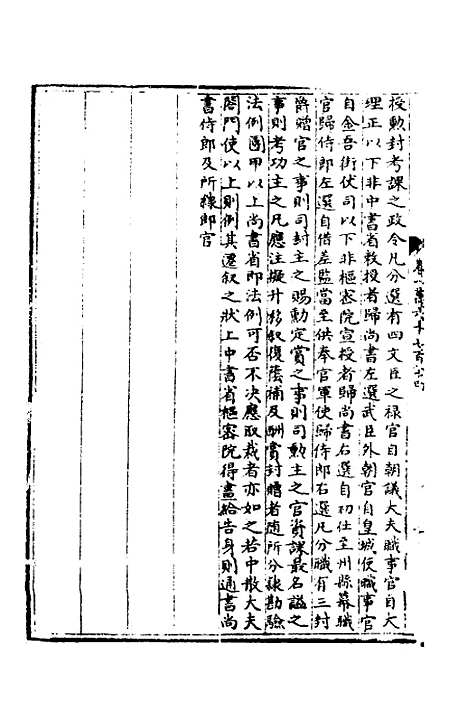 卷一萬六千七百六十四
授勲封考課之政令凡分選有四文臣之禄官自朝議大夫職事官自大
理正以下非中書省敕授者歸尚書左選武臣外朝官自皇城使職事官
自金吾街仗司以下非樞密院宣授者歸尚書右選自初仕至州縣幕職
官歸侍郎左選自借差監當至供奉官軍使歸侍郎右選凡分職有三封
爵贈官之事則司封主之賜勳定賞之事則司勲主之官資課最名謚之
事則考功主之凡應注擬升移叙復蔭補及酬賞封贈者随所分隸勘驗
法例團甲以上尚書省即法例可否不决應取裁者亦如之若中散大夫
閤門使以上則例其遷叙之狀上中書省樞密院得畫給告身則通書尚
書侍郎及所隸郎官